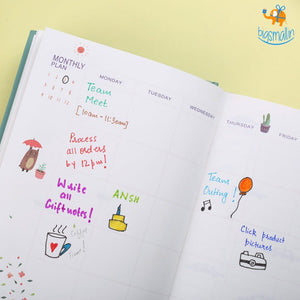 bigsmall.in
MONTHLY
PLAN
MONDAY
TUESDAY
WEDNESDAY
THURSDAY
Team
Meet
[10am - 11:30am]
Process
all orders
by 12pm!
Write
all
Giftnotes!
ANSH
Team
Outing!
Click product
pictures
Coffee